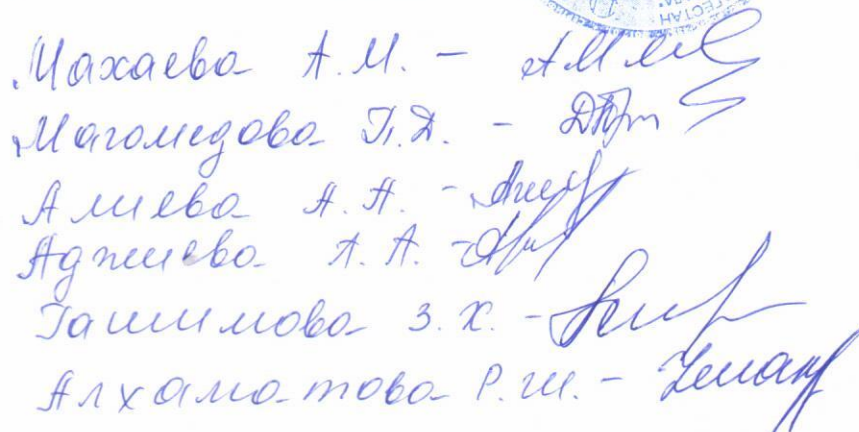 ГЕСТАН
Махаева А.М. -
Магомедова П.Д. -
Алиева А.А. -
Аджиева А.А. -
Гашимова З.Х. -
Алхаматова Р.Ш. -